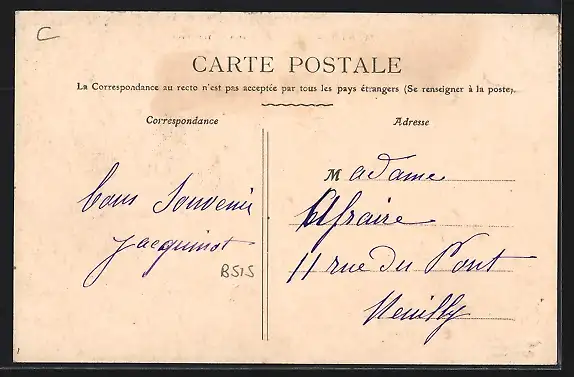 C
CARTE POSTALE
La Correspondance au recto n'est pas acceptée par tous les pays étrangers (Se renseigner à la poste).
Correspondance
Adresse
Bons Souvenir
Jacquinot
B515
Madame
11 rue du Pont
Neuilly